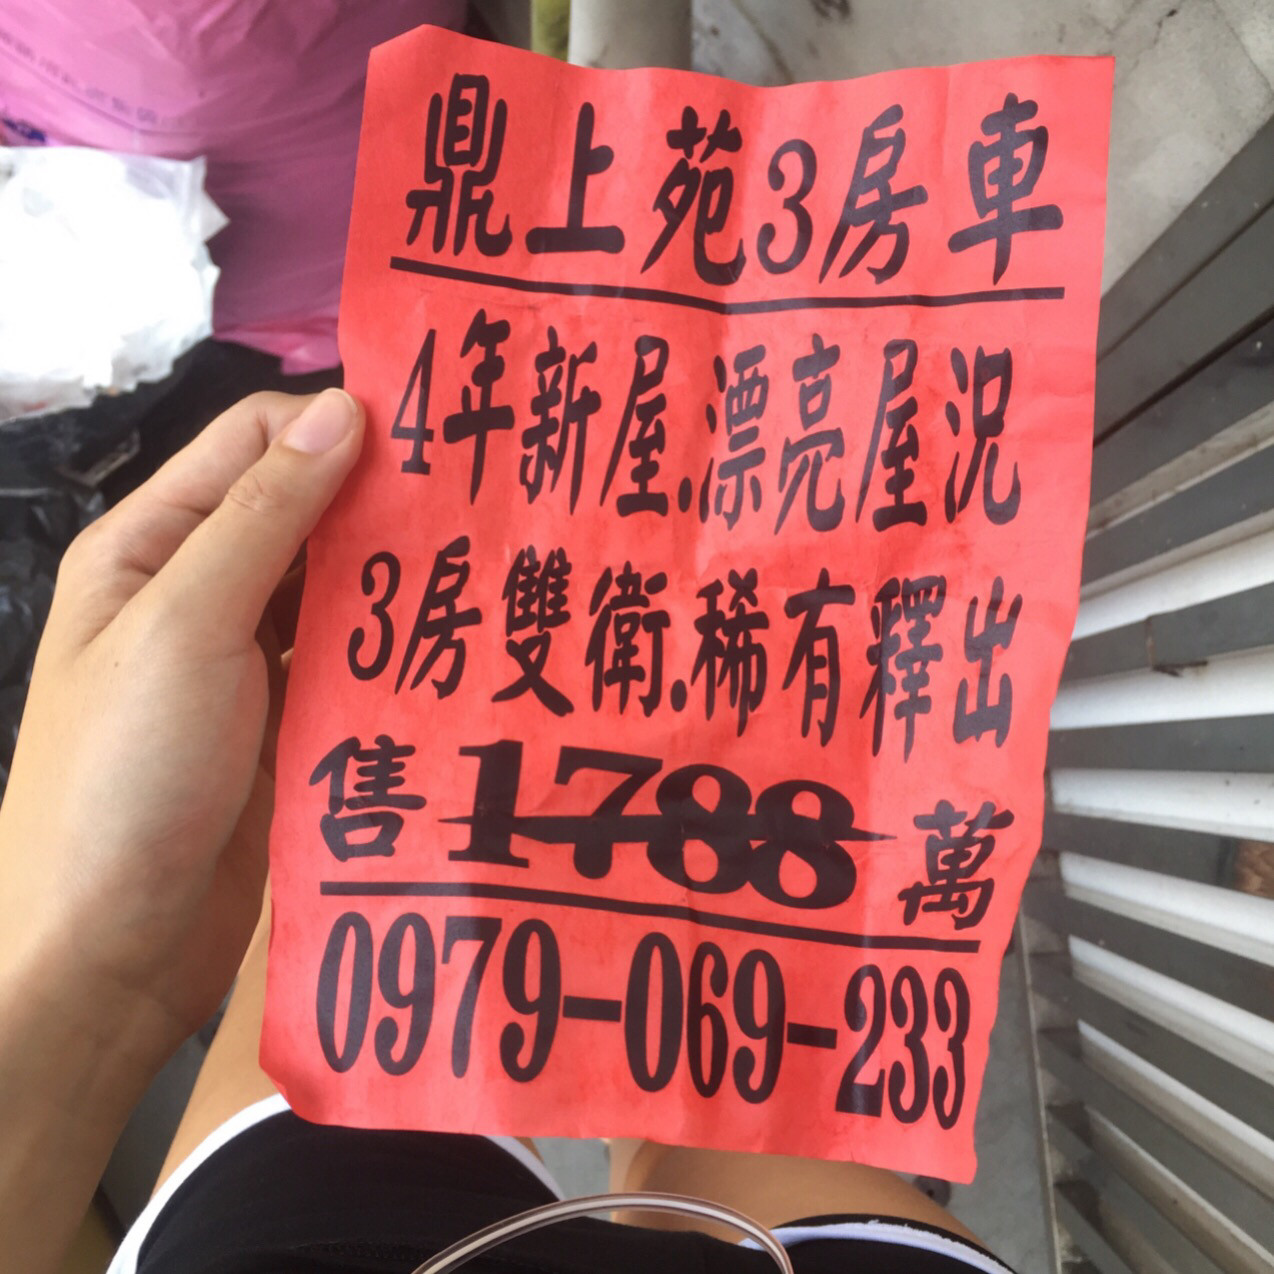 鼎上苑3房車
4年新屋.漂亮屋況
3房雙衛.稀有釋出
售1788萬
0979-069-233